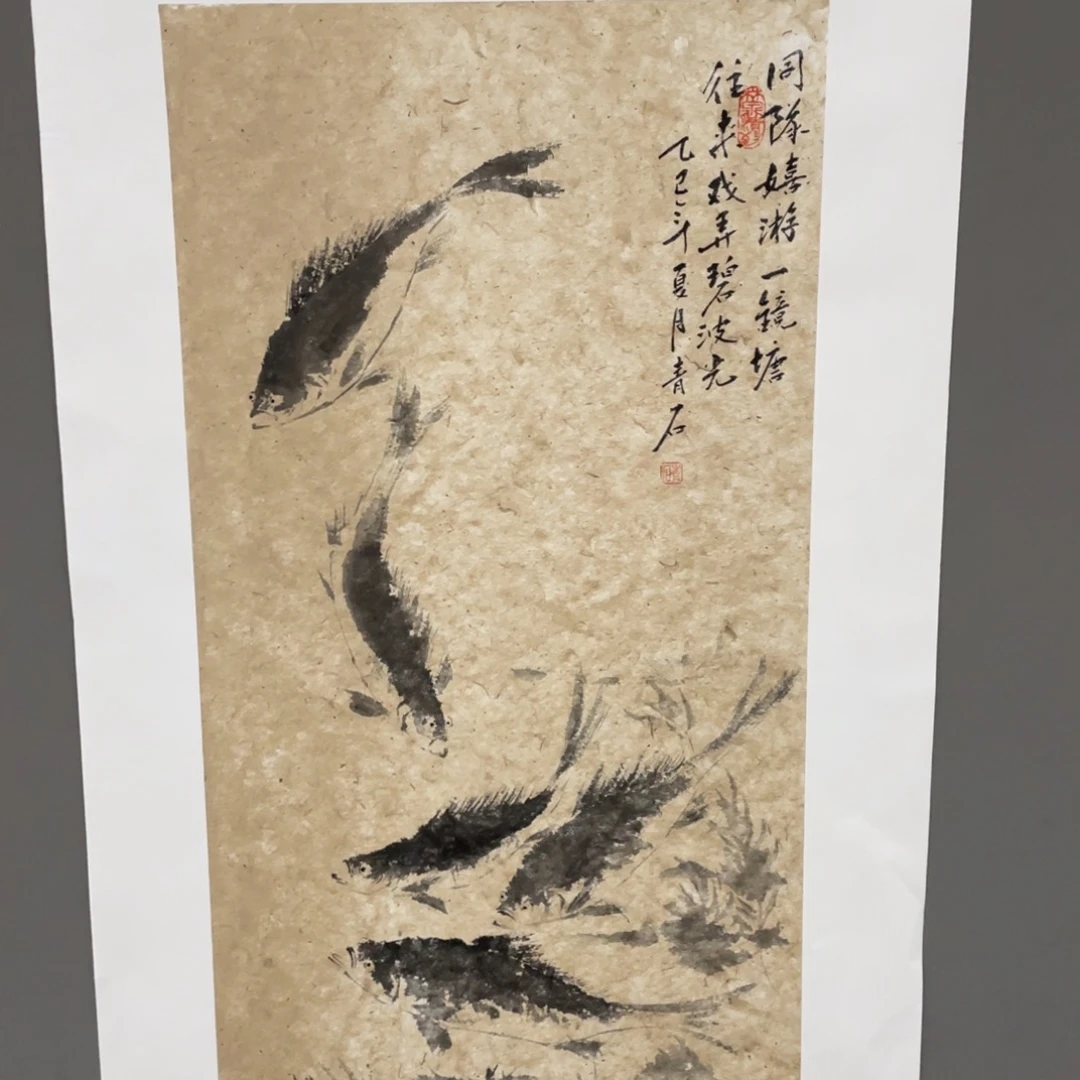 同隊嬉游一鏡塘
往来戏弄碧波光
乙巳年夏月青石